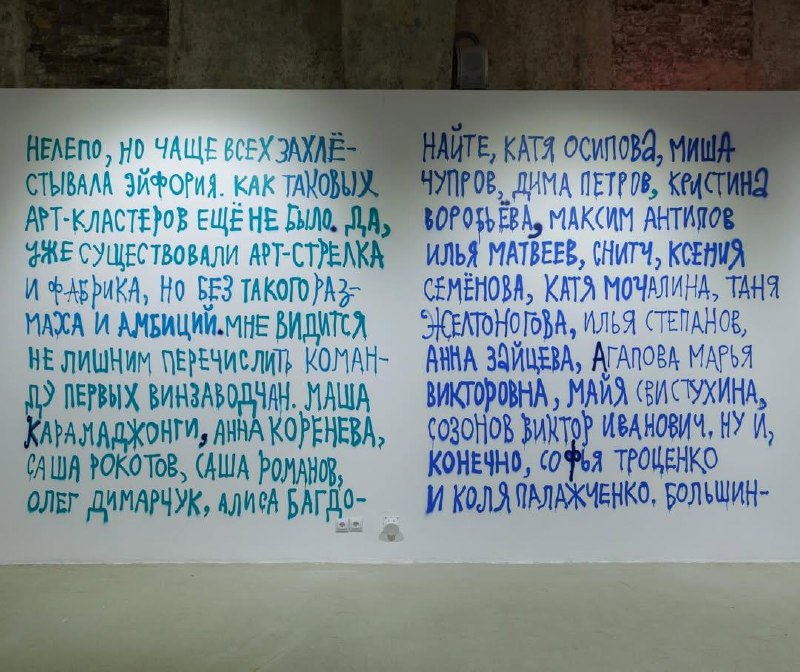 НЕЛЕПО, НО ЧАЩЕ ВСЕХ ЗАХЛЁ-
СТЫВАЛА ЭЙФОРИЯ. КАК ТАКОВЫХ
АРТ-КЛАСТЕРОВ ЕЩЁ НЕ БЫЛО. ДА,
УЖЕ СУЩЕСТВОВАЛИ АРТ-СТРЕЛКА
И ФАБРИКА, НО БЕЗ ТАКОГО РАЗ-
МАХА И АМБИЦИЙ. МНЕ ВИДИТСЯ
НЕ ЛИШНИМ ПЕРЕЧИСЛИТЬ КОМАН-
ДУ ПЕРВЫХ ВИНЗАВОДЧАН. МАША
КАРАМАДЖОНГИ, АННА КОРЕНЕВА,
САША РОКОТОВ, САША РОМАНОВ,
ОЛЕГ ДИМАРЧУК, АЛИСА БАГДО-
НАЙТЕ, КАТЯ ОСИПОВА, МИША
ЧУПРОВ, ДИМА ПЕТРОВ, КРИСТИНА
ВОРОБЬЁВА, МАКСИМ АНТИПОВ
ИЛЬЯ МАТВЕЕВ, СНИТЧ, КСЕНИЯ
СЕМЁНОВА, КАТЯ МОЧАЛИНА, ТАНЯ
ЖЕЛТОНОГОВА, ИЛЬЯ СТЕПАНОВ,
АННА ЗАЙЦЕВА, АГАПОВА МАРЬЯ
ВИКТОРОВНА, МАЙЯ СВИСТУХИНА,
СОЗОНОВ ВИКТОР ИВАНОВИЧ. НУ И,
КОНЕЧНО, СОФЬЯ ТРОЦЕНКО
И КОЛЯ ПАЛАЖЧЕНКО. БОЛЬШИН-